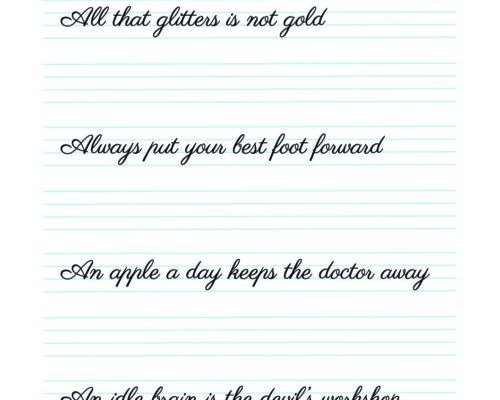 All that glitters is not gold
Always put your best foot forward
An apple a day keeps the doctor away
An idle brain is the devil's workshop